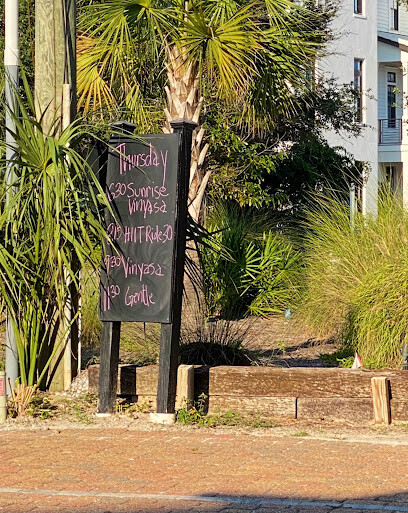 Thursday
630 Sunrise
Vinyasa
815 HIIT Ride30
Vinyasa
1130 Gentle